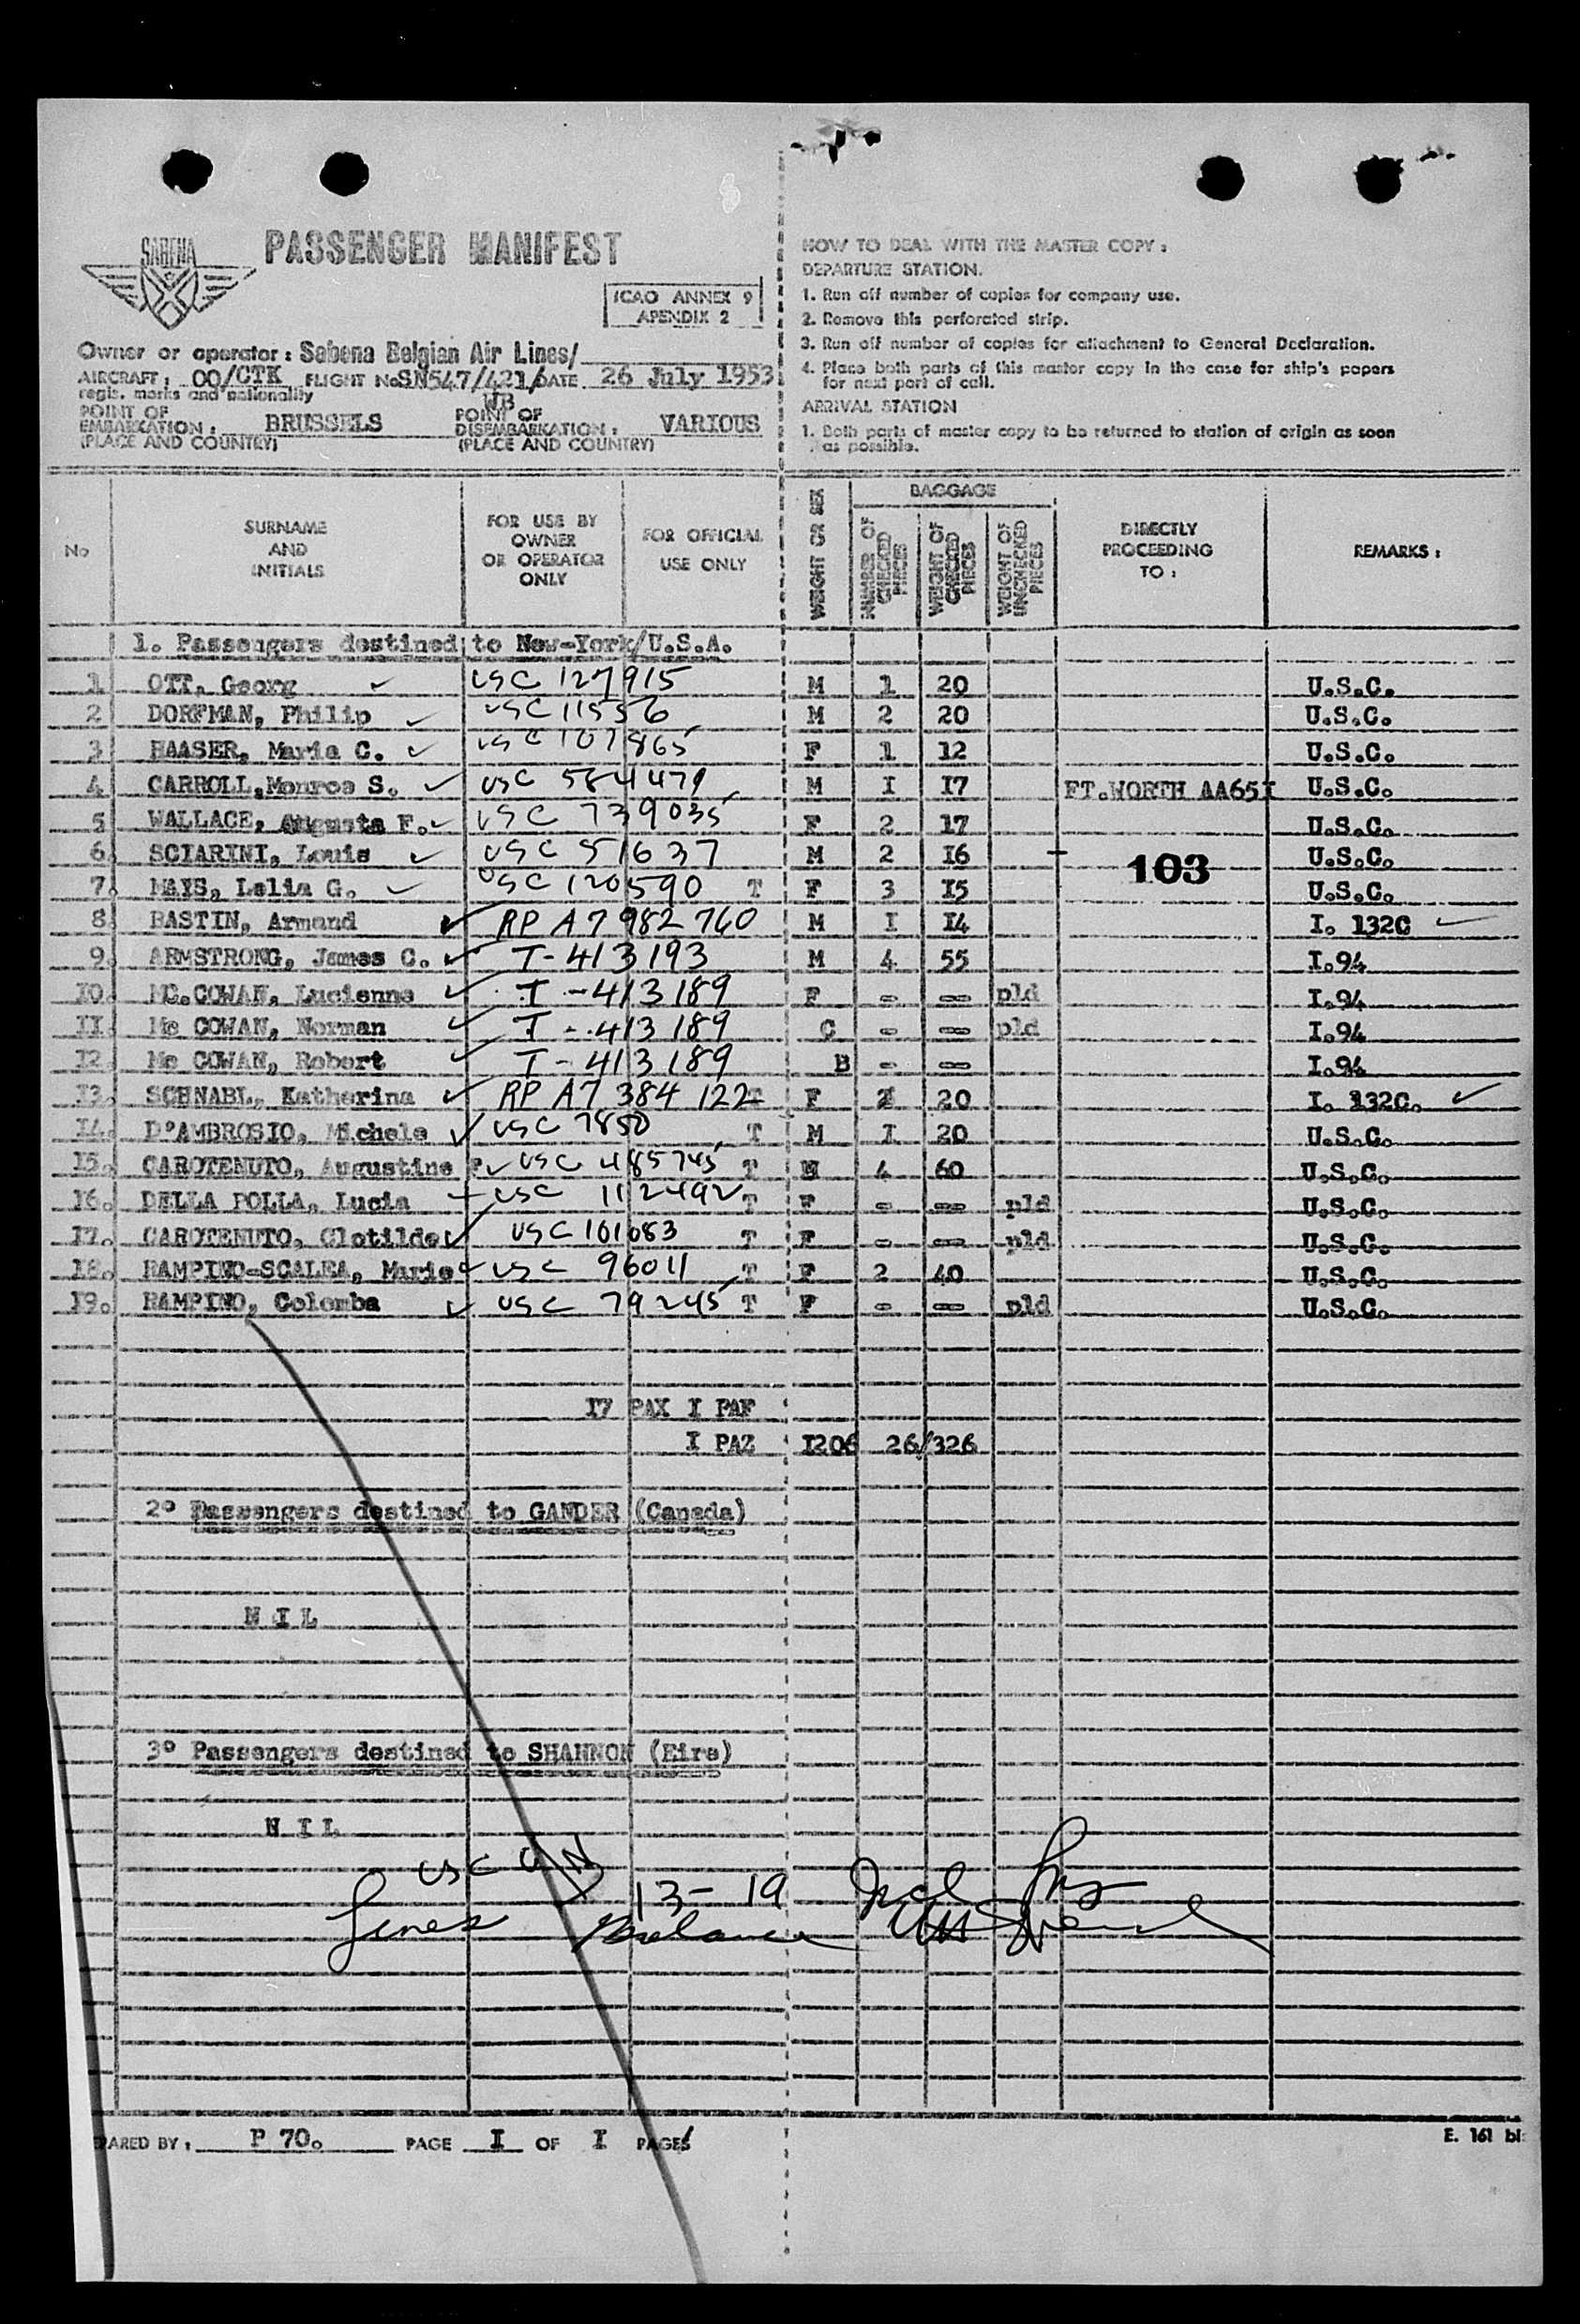 SABENA
PASSENGER MANIFEST
ICAO ANNEX 9
APENDIX 2
Owner or operator : Sabena Belgian Air Lines/
AIRCRAFT : OO/CTK FLIGHT No SN547/421/ DATE 26 July 1953
regis. marks and nationality WB
POINT OF EMBARKATION : BRUSSELS POINT OF DISEMBARKATION : VARIOUS
(PLACE AND COUNTRY) (PLACE AND COUNTRY)
HOW TO DEAL WITH THE MASTER COPY :
DEPARTURE STATION.
1. Run off number of copies for company use.
2. Remove this perforated strip.
3. Run off number of copies for attachment to General Declaration.
4. Place both parts of this master copy in the case for ship's papers
for next port of call.
ARRIVAL STATION
1. Both parts of master copy to be returned to station of origin as soon
as possible.
No SURNAME AND INITIALS FOR USE BY OWNER OR OPERATOR ONLY FOR OFFICIAL USE ONLY WEIGHT OR SEX BAGGAGE NUMBER OF CHECKED PIECES WEIGHT OF CHECKED PIECES WEIGHT OF UNCHECKED PIECES DIRECTLY PROCEEDING TO : REMARKS :
1. Passengers destined to New-York/U.S.A.
1 OTT, Georg USC 127915 M 1 20 U.S.C.
2 DORFMAN, Philip USC 11556 M 2 20 U.S.C.
3 HAASER, Maria C. USC 107865 F 1 12 U.S.C.
4 CARROLL,Monroe S. USC 584479 M I I7 FT.WORTH AA65I U.S.C.
5 WALLACE, Augusta F. USC 739035 F 2 I7 U.S.C.
6. SCIARINI, Louis USC 51637 M 2 I6 U.S.C.
103
7. MAYS, Lelia G. USC 120590 T F 3 I5 U.S.C.
8. BASTIN, Armand RP A7 982 760 M I I4 I. 132C
9. ARMSTRONG, James C. T-413193 M 4 55 I.94
I0. MC.COWAN, Lucienne T-413189 F - - pld I.94
II. Mc COWAN, Norman T-413189 C - - pld I.94
I2. Mc COWAN, Robert T-413189 B - - I.94
I3. SCHNABL, Katherina RP A7 384 122 T F 2 20 I. 132C.
I4. D'AMBROSIO, Michele USC 7850 T M I 20 U.S.C.
I5. CAROTENUTO, Augustine P. USC 485745 T M 4 60 U.S.C.
I6. DELLA POLLA, Lucia USC 112492 T F - - pld U.S.C.
I7. CAROTENUTO, Clotilde USC 101083 T F - - pld U.S.C.
I8. RAMPINO-SCALEA, Marie USC 96011 T F 2 40 U.S.C.
I9. RAMPINO, Colomba USC 79245 T F - - pld U.S.C.
I7 PAX I PAF
I PAZ I206 26/326
2° Passengers destined to GANDER (Canada)
N I L
3° Passengers destined to SHANNON (Eire)
N I L
USC
13 - 19
Lines Balance
PARED BY : P 70. PAGE I OF I PAGES
E. 161 bi